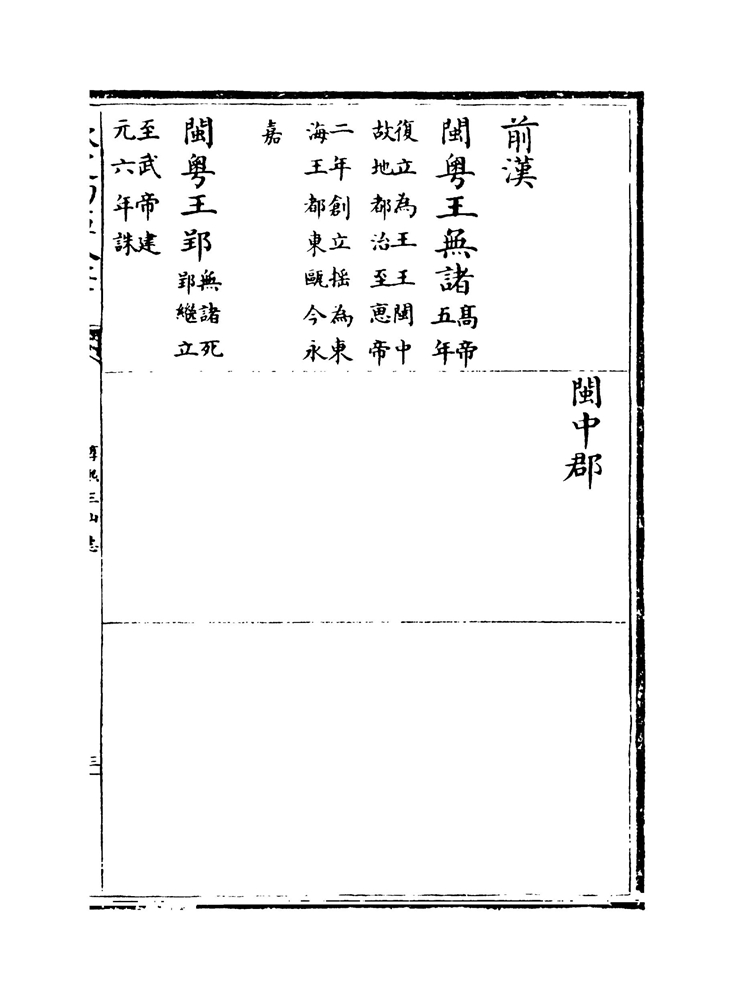 閩中郡
前漢
閩粤王無諸
高帝
五年
復立為王王閩中
故地都治至恵帝
二年創立揺為東
海王都東甌今永
嘉
閩粤王郢
無諸死
郢繼立
至武帝建
元六年誅
淳熙三山志
三